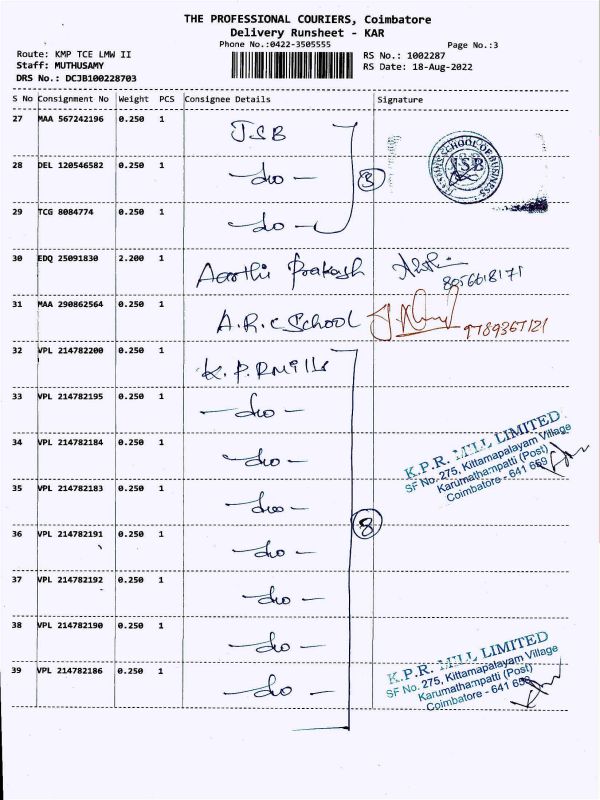 THE PROFESSIONAL COURIERS, Coimbatore
Delivery Runsheet - KAR
Phone No.:0422-3505555 Page No.:3
Route: KMP TCE LMW II RS No.: 1002287
Staff: MUTHUSAMY RS Date: 18-Aug-2022
DRS No.: DCJB100228703
S No Consignment No Weight PCS Consignee Details Signature
27 MAA 567242196 0.250 1 JSB
SCHOOL OF BUSINESS
JSB
28 DEL 120546582 0.250 1 -do- 3
29 TCG 8084774 0.250 1 -do-
30 EDQ 25091830 2.200 1 Aarthi Prakash 8056618171
31 MAA 290862564 0.250 1 A.R.C School 9789367121
32 VPL 214782200 0.250 1 K.P.R Mills
33 VPL 214782195 0.250 1 -do-
34 VPL 214782184 0.250 1 -do-
K.P.R. MILL LIMITED
SF No. 275, Kittamapalayam Village
Karumathampatti (Post)
Coimbatore - 641 659
35 VPL 214782183 0.250 1 -do-
36 VPL 214782191 0.250 1 -do- 8
37 VPL 214782192 0.250 1 -do-
38 VPL 214782190 0.250 1 -do-
39 VPL 214782186 0.250 1 -do-
K.P.R. MILL LIMITED
SF No. 275, Kittamapalayam Village
Karumathampatti (Post)
Coimbatore - 641 659